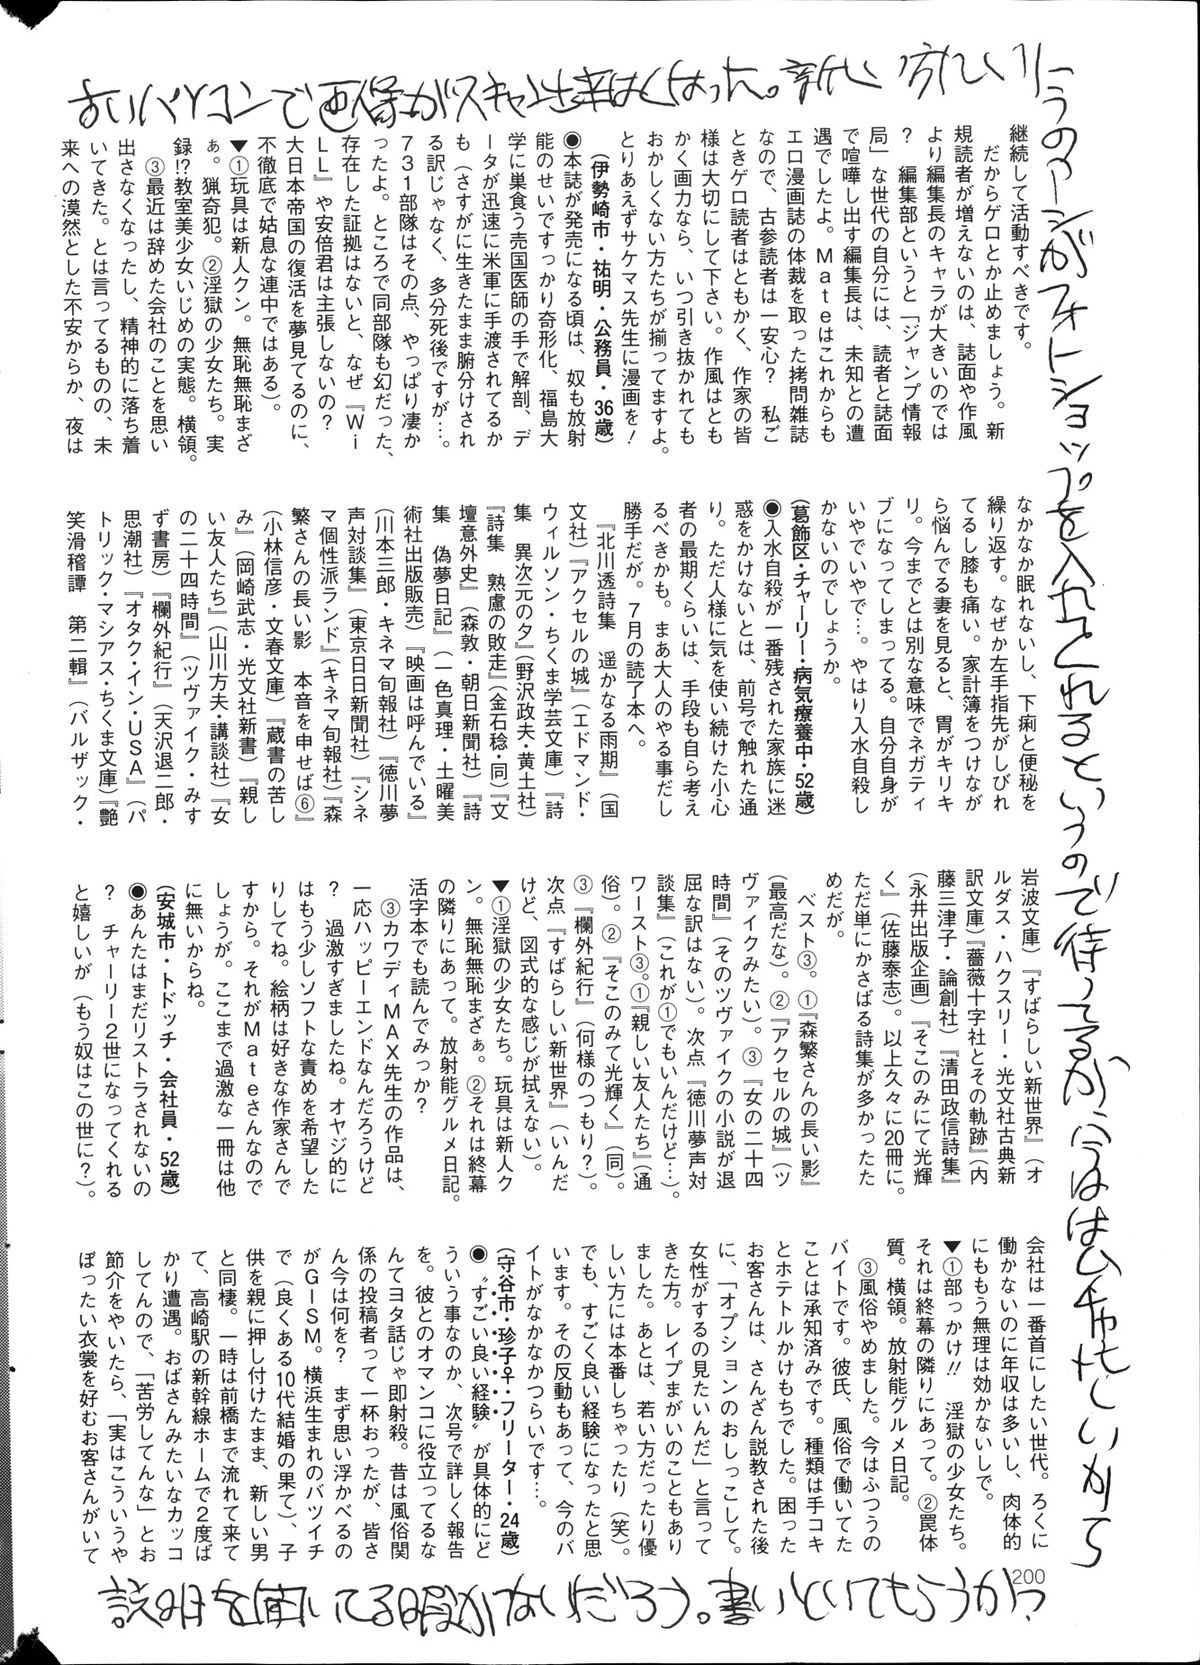 古いパソコンで画像がスキャン出来なくなった。新しい
フォトショップを入れてくれるというので待ってるが、今はムチャ忙しいから
説明を聞いてる暇がないだろう。書いといてもらうか?
継続して活動すべきです。
だからゲロとか止めましょう。新
規読者が増えないのは、誌面や作風
より編集長のキャラが大きいのでは
? 編集部というと「ジャンプ情報
局」な世代の自分には、読者と誌面
で喧嘩し出す編集長は、未知との遭
遇でしたよ。Mateはこれからも
エロ漫画誌の体裁を取った拷問雑誌
なので、古参読者は一安心? 私ご
ときゲロ読者はともかく、作家の皆
様は大切にして下さい。作風はとも
かく画力なら、いつ引き抜かれても
おかしくない方たちが揃ってますよ。
とりあえずサケマス先生に漫画を!
(伊勢崎市・祐明・公務員・36歳)
●本誌が発売になる頃は、奴も放射
能のせいですっかり奇形化、福島大
学に巣食う売国医師の手で解剖、デ
ータが迅速に米軍に手渡されてるか
も(さすがに生きたまま腑分けされ
る訳じゃなく、多分死後ですが…。
731部隊はその点、やっぱり凄か
ったよ。ところで同部隊も幻だった、
存在した証拠はないと、なぜ『Wi
LL』や安倍君は主張しないの?
大日本帝国の復活を夢見てるのに、
不徹底で姑息な連中ではある)。
▼①玩具は新人クン。無恥無恥まざ
ぁ。猟奇犯。②淫獄の少女たち。実
録!?教室美少女いじめの実態。横領。
③最近は辞めた会社のことを思い
出さなくなったし、精神的に落ち着
いてきた。とは言ってるものの、未
来への漠然とした不安からか、夜は
なかなか眠れないし、下痢と便秘を
繰り返す。なぜか左手指先がしびれ
てるし膝も痛い。家計簿をつけなが
ら悩んでる妻を見ると、胃がキリキ
リ。今までとは別な意味でネガティ
ブになってしまってる。自分自身が
いやでいやで…。やはり入水自殺し
かないのでしょうか。
(葛飾区・チャーリー・病気療養中・52歳)
●入水自殺が一番残された家族に迷
惑をかけないとは、前号で触れた通
り。ただ人様に気を使い続けた小心
者の最期くらいは、手段も自ら考え
るべきかも。まあ大人のやる事だし
勝手だが。7月の読了本へ。
『北川透詩集 遥かなる雨期』(国
文社)『アクセルの城』(エドマンド・
ウィルソン・ちくま学芸文庫)『詩
集 異次元の夕』(野沢政夫・黄土社)
『詩集 熟慮の敗走』(金石稔・同)『文
壇意外史』(森敦・朝日新聞社)『詩
集 偽夢日記』(一色真理・土曜美
術社出版販売)『映画は呼んでいる』
(川本三郎・キネマ旬報社)『徳川夢
声対談集』(東京日日新聞社)『シネ
マ個性派ランド』(キネマ旬報社)『森
繁さんの長い影 本音を申せば⑥』
(小林信彦・文春文庫)『蔵書の苦し
み』(岡崎武志・光文社新書)『親し
い友人たち』(山川方夫・講談社)『女
の二十四時間』(ツヴァイク・みす
ず書房)『欄外紀行』(天沢退二郎・
思潮社)『オタク・イン・USA』(パ
トリック・マシアス・ちくま文庫)『艶
笑滑稽譚 第二輯』(バルザック・
岩波文庫)『すばらしい新世界』(オ
ルダス・ハクスリー・光文社古典新
訳文庫)『薔薇十字社とその軌跡』(内
藤三津子・論創社)『清田政信詩集』
(永井出版企画)『そこのみにて光輝
く』(佐藤泰志)。以上久々に20冊に。
ただ単にかさばる詩集が多かったた
めだが。
ベスト③。①『森繁さんの長い影』
(最高だな)。②『アクセルの城』(ツ
ヴァイクみたい)。③『女の二十四
時間』(そのツヴァイクの小説が退
屈な訳はない)。次点『徳川夢声対
談集』(これが①でもいんだけど…)。
ワースト③。①『親しい友人たち』(通
俗)。②『そこのみて光輝く』(同)。
③『欄外紀行』(何様のつもり?)。
次点『すばらしい新世界』(いんだ
けど、図式的な感じが拭えない)。
▼①淫獄の少女たち。玩具は新人ク
ン。無恥無恥まざぁ。②それは終幕
の隣りにあって。放射能グルメ日記。
③カワディMAX先生の作品は、
一応ハッピーエンドなんだろうけど
? 過激すぎましたね。オヤジ的に
はもう少しソフトな責めを希望した
りしてね。絵柄は好きな作家さんで
すから。それがMateさんなので
しょうが。ここまで過激な一冊は他
に無いからね。
(安城市・トドッチ・会社員・52歳)
●あんたはまだリストラされないの
? チャーリー2世になってくれる
と嬉しいが(もう奴はこの世に?)。
活字本でも読んでみっか?
会社は一番首にしたい世代。ろくに
働かないのに年収は多いし、肉体的
にももう無理は効かないしで。
▼①部っかけ!! 淫獄の少女たち。
それは終幕の隣りにあって。②罠体
質。横領。放射能グルメ日記。
③風俗やめました。今はふつうの
バイトです。彼氏、風俗で働いてた
ことは承知済みです。種類は手コキ
とホテトルかけもちでした。困った
お客さんは、さんざん説教された後
に、「オプションのおしっこして。
女性がするの見たいんだ」と言って
きた方。レイプまがいのこともあり
ました。あとは、若い方だったり優
しい方には本番しちゃったり(笑)。
でも、すごく良い経験になったと思
います。その反動もあって、今のバ
イトがなかなかつらいです…。
(守谷市・珍子♀・フリーター・24歳)
●〝すごい良い経験〟が具体的にど
ういう事なのか、次号で詳しく報告
を。彼とのオマンコに役立ってるな
んてヨタ話じゃ即射殺。昔は風俗関
係の投稿者って一杯おったが、皆さ
ん今は何を? まず思い浮かべるの
がGISM。横浜生まれのバツイチ
で(良くある10代結婚の果て)、子
供を親に押し付けたまま、新しい男
と同棲。一時は前橋まで流れて来て
て、高崎駅の新幹線ホームで2度ば
かり遭遇。おばさんみたいなカッコ
してんので、「苦労してんな」とお
節介をやいたら、「実はこういうや
ぼったい衣裳を好むお客さんがいて
200